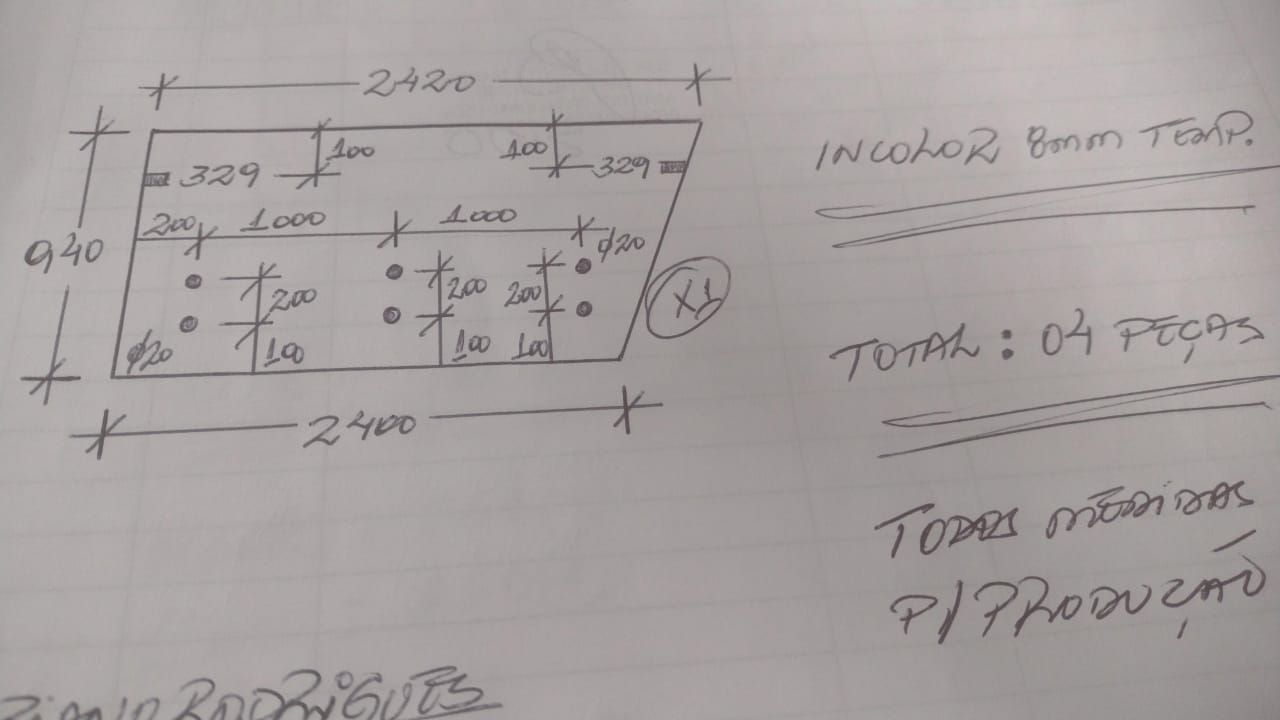 2420
100
100
329
329
200
1000
1000
ø20
940
200
200
200
X1
ø20
100
100
100
2400
INCOLOR 8mm TEMP.
TOTAL: 04 PEÇAS
TODAS MEDIDAS
P/ PRODUÇÃO
RODRIGUES